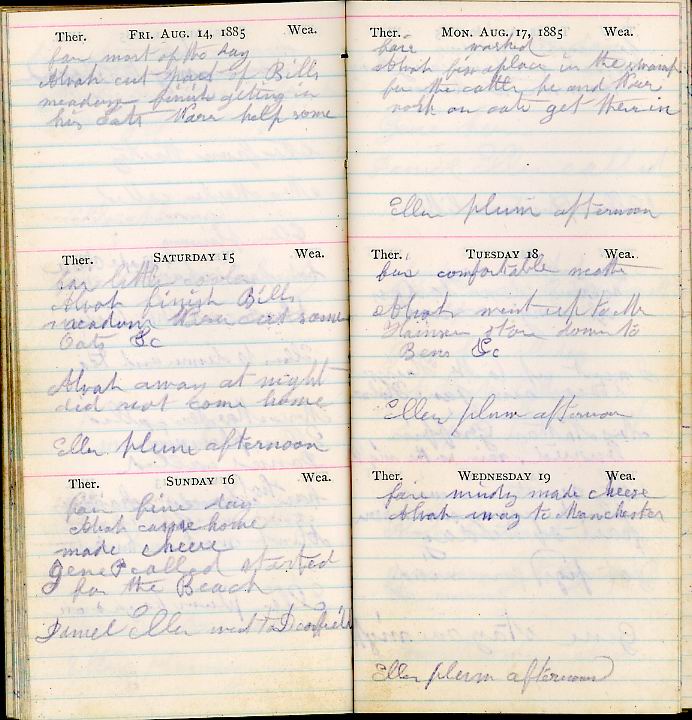 Ther. FRI. AUG. 14, 1885 Wea.
fair most of the day
Alvah cut part of Bills
meadow finish geting in
his oats Warr help some
Ther. SATURDAY 15 Wea.
fair little
Alvah finish Bills
meadow Warr cut some
Oats &c
Alvah away at night
did not come home
Ellen plum afternoon
Ther. SUNDAY 16 Wea.
fair fine day
Alvah came home
made cheese
Gene P called started
for the Beach
Daniel Ellen went to Deerfield
Ther. MON. AUG. 17, 1885 Wea.
fair washed
Alvah fix a place in the swamp
for the cattle he and Warr
work on oats get them in
Ellen plum afternoon
Ther. TUESDAY 18 Wea.
fair comfortable
Alvah went up to Mr
store down to
Bens &c
Ellen plum afternoon
Ther. WEDNESDAY 19 Wea.
fair windy made cheese
Alvah away to Manchester
Ellen plum afternoon